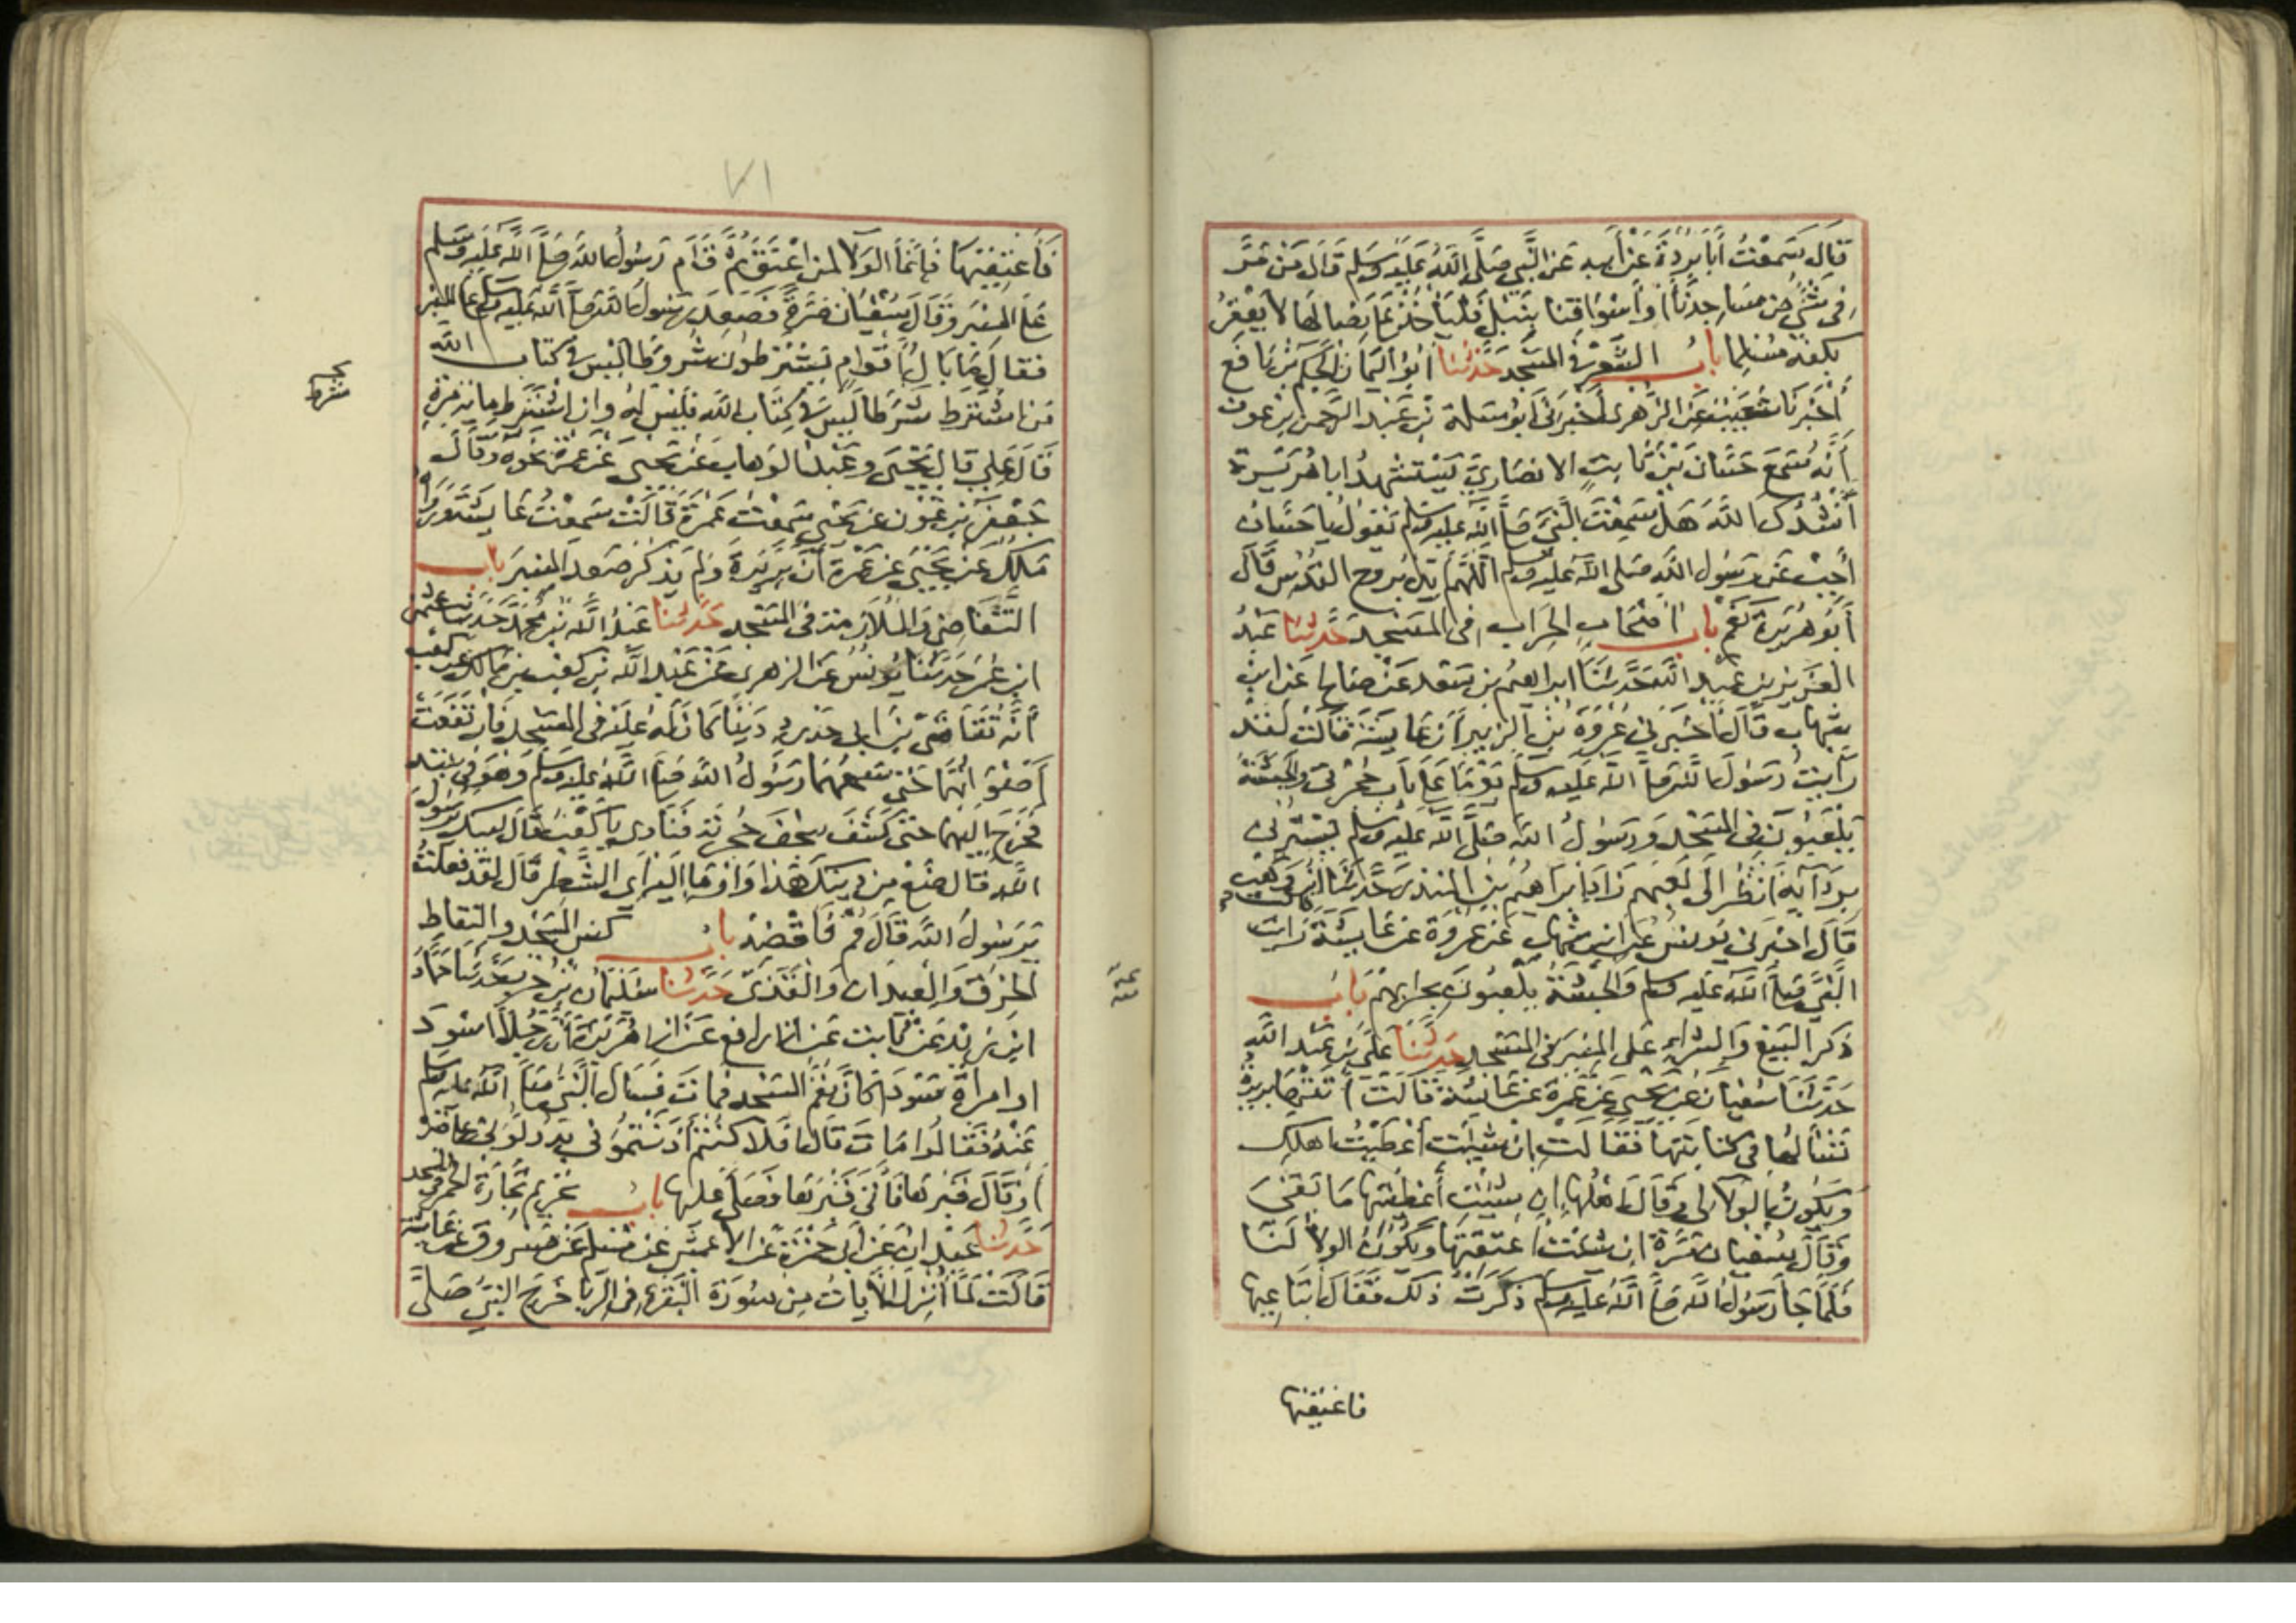 قَالَ سَمِعْتُ أَبَا بُرْدَةَ عَنْ أَبِيهِ عَنِ النَّبِيِّ صَلَّى اللَّهُ عَلَيْهِ وَسَلَّمَ قَالَ مَنْ مَرَّ
فِي شَيْءٍ مِنْ مَسَاجِدِنَا أَوْ أَسْوَاقِنَا بِنَبْلٍ فَلْيَأْخُذْ عَلَى نِصَالِهَا لَا يَعْقِرُ
بِكَفِّهِ مُسْلِمًا بَابُ الشِّعْرِ فِي الْمَسْجِدِ حَدَّثَنَا أَبُو الْيَمَانِ الْحَكَمُ بْنُ نَافِعٍ
أَخْبَرَنَا شُعَيْبٌ عَنِ الزُّهْرِيِّ أَخْبَرَنِي أَبُو سَلَمَةَ بْنُ عَبْدِ الرَّحْمَنِ بْنِ عَوْفٍ
أَنَّهُ سَمِعَ حَسَّانَ بْنَ ثَابِتٍ الْأَنْصَارِيَّ يَسْتَشْهِدُ أَبَا هُرَيْرَةَ
أَنْشُدُكَ اللَّهَ هَلْ سَمِعْتَ النَّبِيَّ صَلَّى اللَّهُ عَلَيْهِ وَسَلَّمَ يَقُولُ يَا حَسَّانُ
أَجِبْ عَنْ رَسُولِ اللَّهِ صَلَّى اللَّهُ عَلَيْهِ وَسَلَّمَ اللَّهُمَّ أَيِّدْهُ بِرُوحِ الْقُدُسِ قَالَ
أَبُو هُرَيْرَةَ نَعَمْ بَابُ أَصْحَابِ الْحِرَابِ فِي الْمَسْجِدِ حَدَّثَنَا عَبْدُ
الْعَزِيزِ بْنُ عَبْدِ اللَّهِ حَدَّثَنَا إِبْرَاهِيمُ بْنُ سَعْدٍ عَنْ صَالِحٍ عَنِ ابْنِ
شِهَابٍ قَالَ أَخْبَرَنِي عُرْوَةُ بْنُ الزُّبَيْرِ أَنَّ عَائِشَةَ قَالَتْ لَقَدْ
رَأَيْتُ رَسُولَ اللَّهِ صَلَّى اللَّهُ عَلَيْهِ وَسَلَّمَ يَوْمًا عَلَى بَابِ حُجْرَتِي وَالْحَبَشَةُ
يَلْعَبُونَ فِي الْمَسْجِدِ وَرَسُولُ اللَّهِ صَلَّى اللَّهُ عَلَيْهِ وَسَلَّمَ يَسْتُرُنِي
بِرِدَائِهِ أَنْظُرُ إِلَى لَعِبِهِمْ زَادَ إِبْرَاهِيمُ بْنُ الْمُنْذِرِ حَدَّثَنَا ابْنُ وَهْبٍ
قَالَ أَخْبَرَنِي يُونُسُ عَنِ ابْنِ شِهَابٍ عَنْ عُرْوَةَ عَنْ عَائِشَةَ رَأَيْتُ
النَّبِيَّ صَلَّى اللَّهُ عَلَيْهِ وَسَلَّمَ وَالْحَبَشَةُ يَلْعَبُونَ بِحِرَابِهِمْ بَابُ
ذِكْرِ الْبَيْعِ وَالشِّرَاءِ عَلَى الْمِنْبَرِ فِي الْمَسْجِدِ حَدَّثَنَا عَلِيُّ بْنُ عَبْدِ اللَّهِ
حَدَّثَنَا سُفْيَانُ عَنْ يَحْيَى عَنْ عَمْرَةَ عَنْ عَائِشَةَ قَالَتْ أَتَتْهَا بَرِيرَةُ
تَسْأَلُهَا فِي كِتَابَتِهَا فَقَالَتْ إِنْ شِئْتِ أَعْطَيْتُ أَهْلَكِ
وَيَكُونُ الْوَلَاءُ لِي وَقَالَ أَهْلُهَا إِنْ شِئْتِ أَعْطَيْتِهَا مَا بَقِيَ
وَقَالَ سُفْيَانُ مَرَّةً إِنْ شِئْتِ أَعْتَقْتِهَا وَيَكُونُ الْوَلَاءُ لَنَا
فَلَمَّا جَاءَ رَسُولُ اللَّهِ صَلَّى اللَّهُ عَلَيْهِ وَسَلَّمَ ذَكَّرَتْهُ ذَلِكَ فَقَالَ ابْتَاعِيهَا
فاعتقيها
٧١
فَأَعْتِقِيهَا فَإِنَّمَا الْوَلَاءُ لِمَنْ أَعْتَقَ ثُمَّ قَامَ رَسُولُ اللَّهِ صَلَّى اللَّهُ عَلَيْهِ وَسَلَّمَ
عَلَى الْمِنْبَرِ وَقَالَ سُفْيَانُ مَرَّةً فَصَعِدَ رَسُولُ اللَّهِ صَلَّى اللَّهُ عَلَيْهِ وَسَلَّمَ عَلَى الْمِنْبَرِ
فَقَالَ مَا بَالُ أَقْوَامٍ يَشْتَرِطُونَ شُرُوطًا لَيْسَ فِي كِتَابِ اللَّهِ
مَنِ اشْتَرَطَ شَرْطًا لَيْسَ فِي كِتَابِ اللَّهِ فَلَيْسَ لَهُ وَإِنِ اشْتَرَطَ مِائَةَ مَرَّةٍ
قَالَ عَلِيٌّ قَالَ يَحْيَى وَعَبْدُ الْوَهَّابِ عَنْ يَحْيَى عَنْ عَمْرَةَ نَحْوَهُ وَقَالَ
جَعْفَرُ بْنُ عَوْنٍ عَنْ يَحْيَى سَمِعْتُ عَمْرَةَ قَالَتْ سَمِعْتُ عَائِشَةَ وَرَوَاهُ
مَالِكٌ عَنْ يَحْيَى عَنْ عَمْرَةَ أَنَّ بَرِيرَةَ وَلَمْ يَذْكُرْ صَعِدَ الْمِنْبَرَ بَابُ
التَّقَاضِي وَالْمُلَازَمَةِ فِي الْمَسْجِدِ حَدَّثَنَا عَبْدُ اللَّهِ بْنُ مُحَمَّدٍ حَدَّثَنَا عُثْمَانُ
ابْنُ عُمَرَ حَدَّثَنَا يُونُسُ عَنِ الزُّهْرِيِّ عَنْ عَبْدِ اللَّهِ بْنِ كَعْبِ بْنِ مَالِكٍ عَنْ كَعْبٍ
أَنَّهُ تَقَاضَى ابْنَ أَبِي حَدْرَدٍ دَيْنًا كَانَ لَهُ عَلَيْهِ فِي الْمَسْجِدِ فَارْتَفَعَتْ
أَصْوَاتُهُمَا حَتَّى سَمِعَهُمَا رَسُولُ اللَّهِ صَلَّى اللَّهُ عَلَيْهِ وَسَلَّمَ وَهُوَ فِي بَيْتِهِ
فَخَرَجَ إِلَيْهِمَا حَتَّى كَشَفَ سِجْفَ حُجْرَتِهِ فَنَادَى يَا كَعْبُ قَالَ لَبَّيْكَ يَا رَسُولَ
اللَّهِ قَالَ ضَعْ مِنْ دَيْنِكَ هَذَا وَأَوْمَأَ إِلَيْهِ أَيِ الشَّطْرَ قَالَ لَقَدْ فَعَلْتُ
يَا رَسُولَ اللَّهِ قَالَ قُمْ فَاقْضِهِ بَابُ كَنْسِ الْمَسْجِدِ وَالْتِقَاطِ
الْخِرَقِ وَالْعِيدَانِ وَالْقَذَى حَدَّثَنَا سُلَيْمَانُ بْنُ حَرْبٍ حَدَّثَنَا حَمَّادُ
ابْنُ زَيْدٍ عَنْ ثَابِتٍ عَنْ أَبِي رَافِعٍ عَنْ أَبِي هُرَيْرَةَ أَنَّ رَجُلًا أَسْوَدَ
أَوِ امْرَأَةً سَوْدَاءَ كَانَ يَقُمُّ الْمَسْجِدَ فَمَاتَ فَسَأَلَ النَّبِيُّ صَلَّى اللَّهُ عَلَيْهِ وَسَلَّمَ
عَنْهُ فَقَالُوا مَاتَ قَالَ أَفَلَا كُنْتُمْ آذَنْتُمُونِي بِهِ دُلُّونِي عَلَى قَبْرِهِ
أَوْ قَالَ قَبْرِهَا فَأَتَى قَبْرَهَا فَصَلَّى عَلَيْهَا بَابُ تَحْرِيمِ تِجَارَةِ الْخَمْرِ فِي الْمَسْجِدِ
حَدَّثَنَا عَبْدَانُ عَنْ أَبِي حَمْزَةَ عَنِ الْأَعْمَشِ عَنْ مُسْلِمٍ عَنْ مَسْرُوقٍ عَنْ عَائِشَةَ
قَالَتْ لَمَّا أُنْزِلَ الْآيَاتُ مِنْ سُورَةِ الْبَقَرَةِ فِي الرِّبَا خَرَجَ النَّبِيُّ صَلَّى